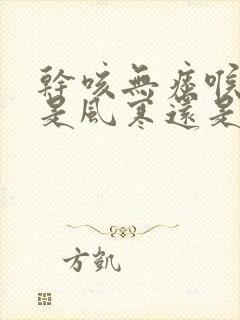 幹咳無痰喉
是風寒還是
方凱